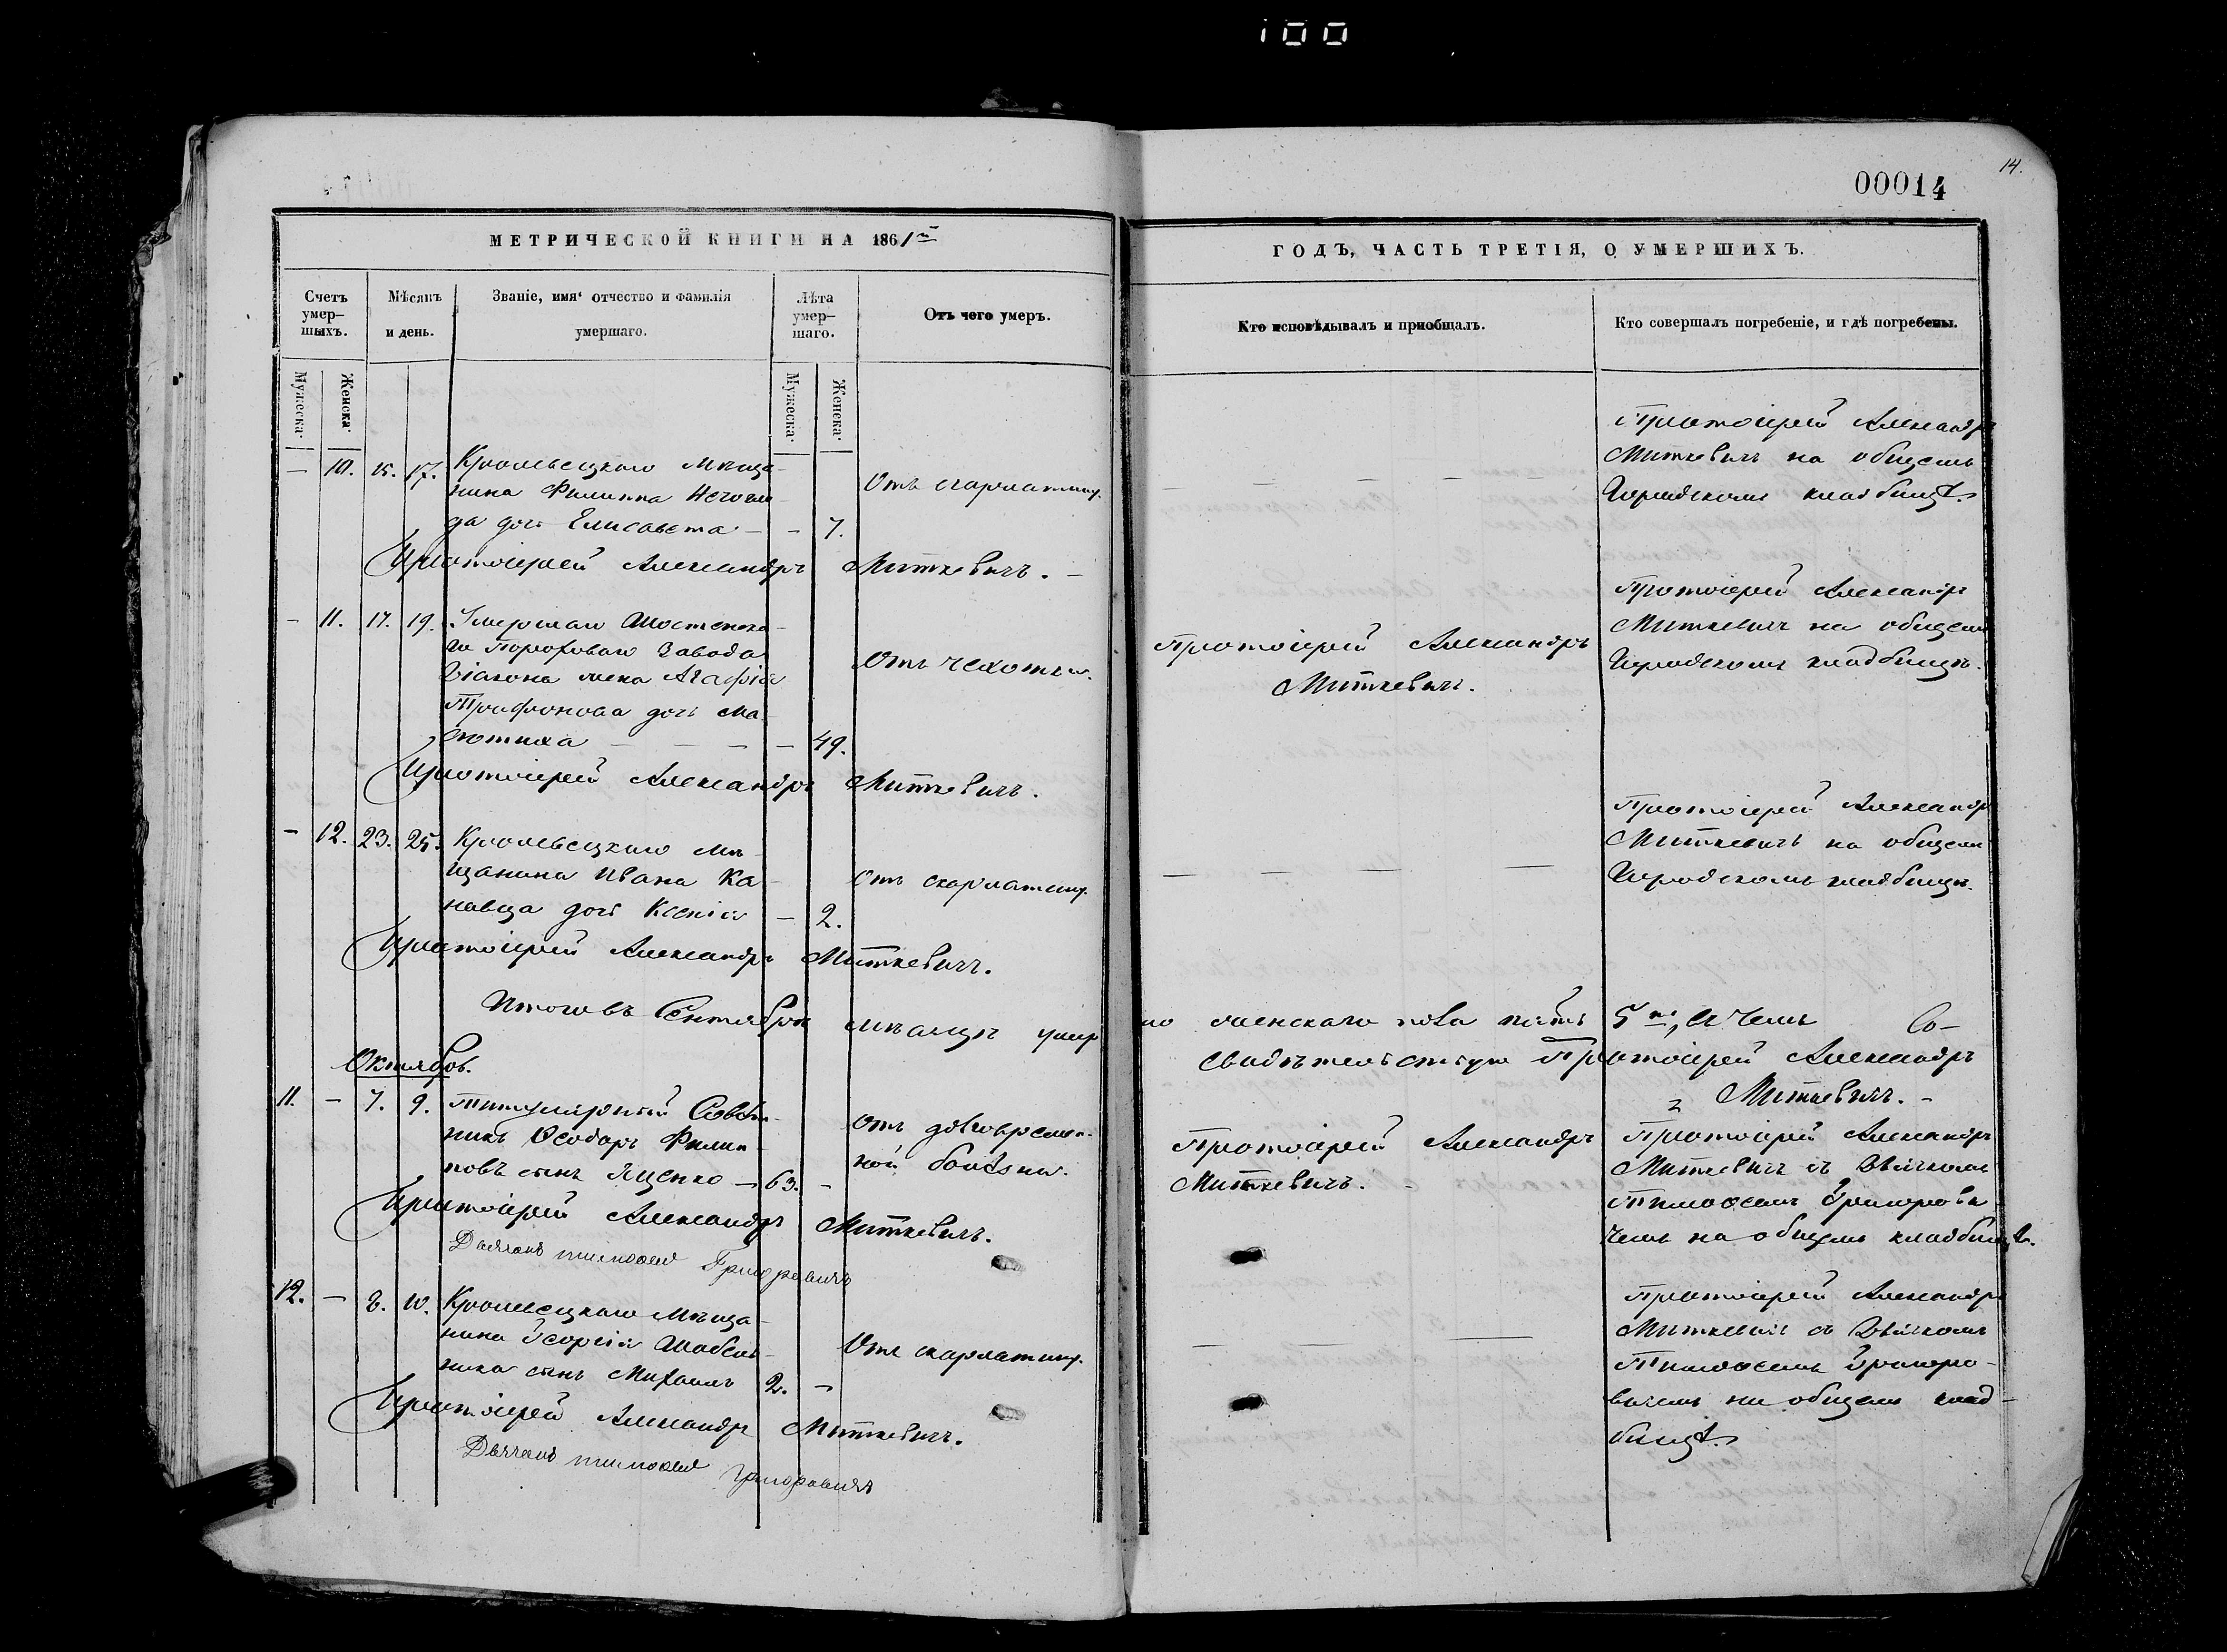 100
14.
00014
МЕТРИЧЕСКОЙ КНИГИ НА 1861й
ГОДЪ, ЧАСТЬ ТРЕТІЯ, О УМЕРШИХЪ.
Счетъ умер-
шыхъ.
Мѣсяцъ
и день.
Званіе, имя отчество и фамилія
умершаго.
Лѣта
умер-
шаго.
Отъ чего умеръ.
Кто исповѣдывалъ и приобщалъ.
Кто совершалъ погребеніе, и гдѣ погребены.
Мужеска.
Женска.
Мужеска.
Женска.
– 10. 15. 17. Кролевецкаго Мѣща-
нина Филиппа
да дочь Елисавета – – 7.
Отъ скарлатины.
Протоіерей Александръ
Миткевичъ на общемъ
Городскомъ кладбищѣ.
Протоіерей Александръ Миткевичъ. –
– 11. 17. 19. Умершаго Шостенска-
го Пороховаго Завода
Діакона жена Агафія
Трифонова дочь Ма-
– – – – 49.
Отъ чахотки.
Протоіерей Александръ
Миткевичъ.
Протоіерей Александръ
Миткевичъ на общемъ
Городскомъ кладбищѣ.
Протоіерей Александръ Миткевичъ.
– 12. 23. 25. Кролевецкаго Мѣ-
щанина Ивана Ка-
навца дочь Ксенія – 2.
Отъ скарлатины.
Протоіерей Александръ
Миткевичъ на общемъ
Городскомъ кладбищѣ.
Протоіерей Александръ Миткевичъ.
Итого въ Сентябрѣ мѣсяцѣ умер
ло женскаго пола пять 5ть, въ чемъ Со-
свидѣтельствую Протоіерей Александръ
Миткевичъ. –
Октябрь.
11. – 7. 9. Титулярный Совѣт-
никъ Ѳеодоръ Филип-
повъ сынъ Яценко – 63. –
Отъ долговремен-
ной болѣзни.
Протоіерей Александръ
Миткевичъ.
Протоіерей Александръ
Миткевичъ съ Дьячкомъ
Тимоѳеемъ Григорови-
чемъ на общемъ кладбищѣ.
Протоіерей Александръ Миткевичъ.
Дьячокъ тимоѳей Григоровичъ
12. – 8. 10. Кролевецкаго Мѣща-
нина Георгія Шабель-
ника сынъ Михаилъ 2. –
Отъ скарлатины.
Протоіерей Александръ
Миткевичъ съ Дьячкомъ
Тимоѳеемъ Григоро-
вичемъ на общемъ клад-
бищѣ.
Протоіерей Александръ Миткевичъ.
Дьячокъ тимоѳей григоровичъ